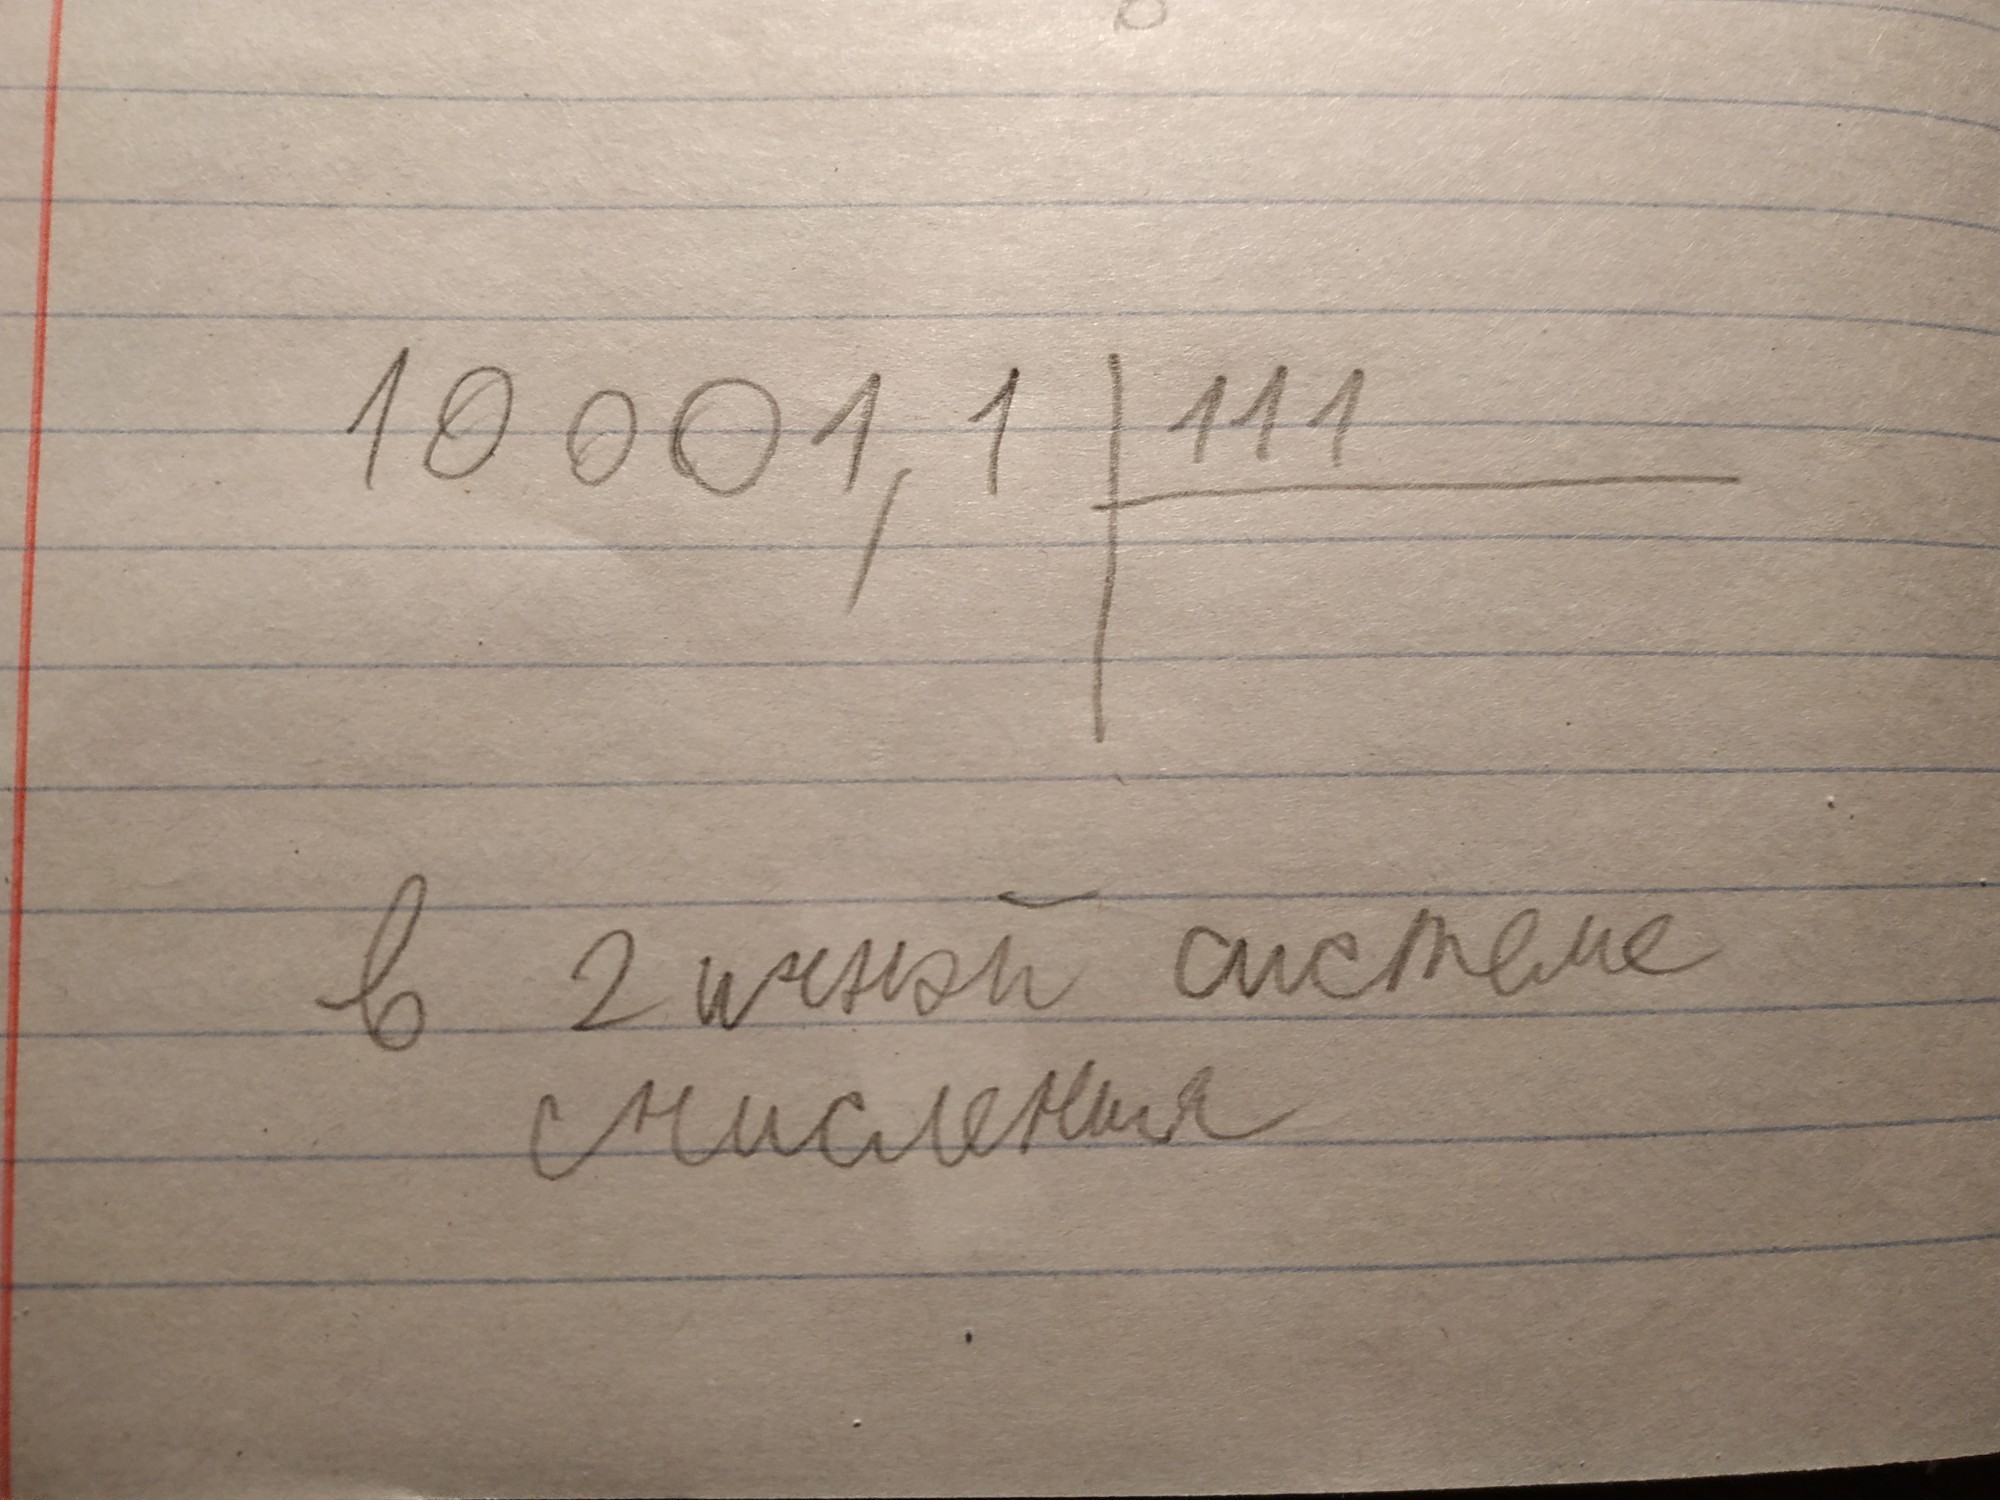 10001,1 | 111
в 2ичной системе
счисления